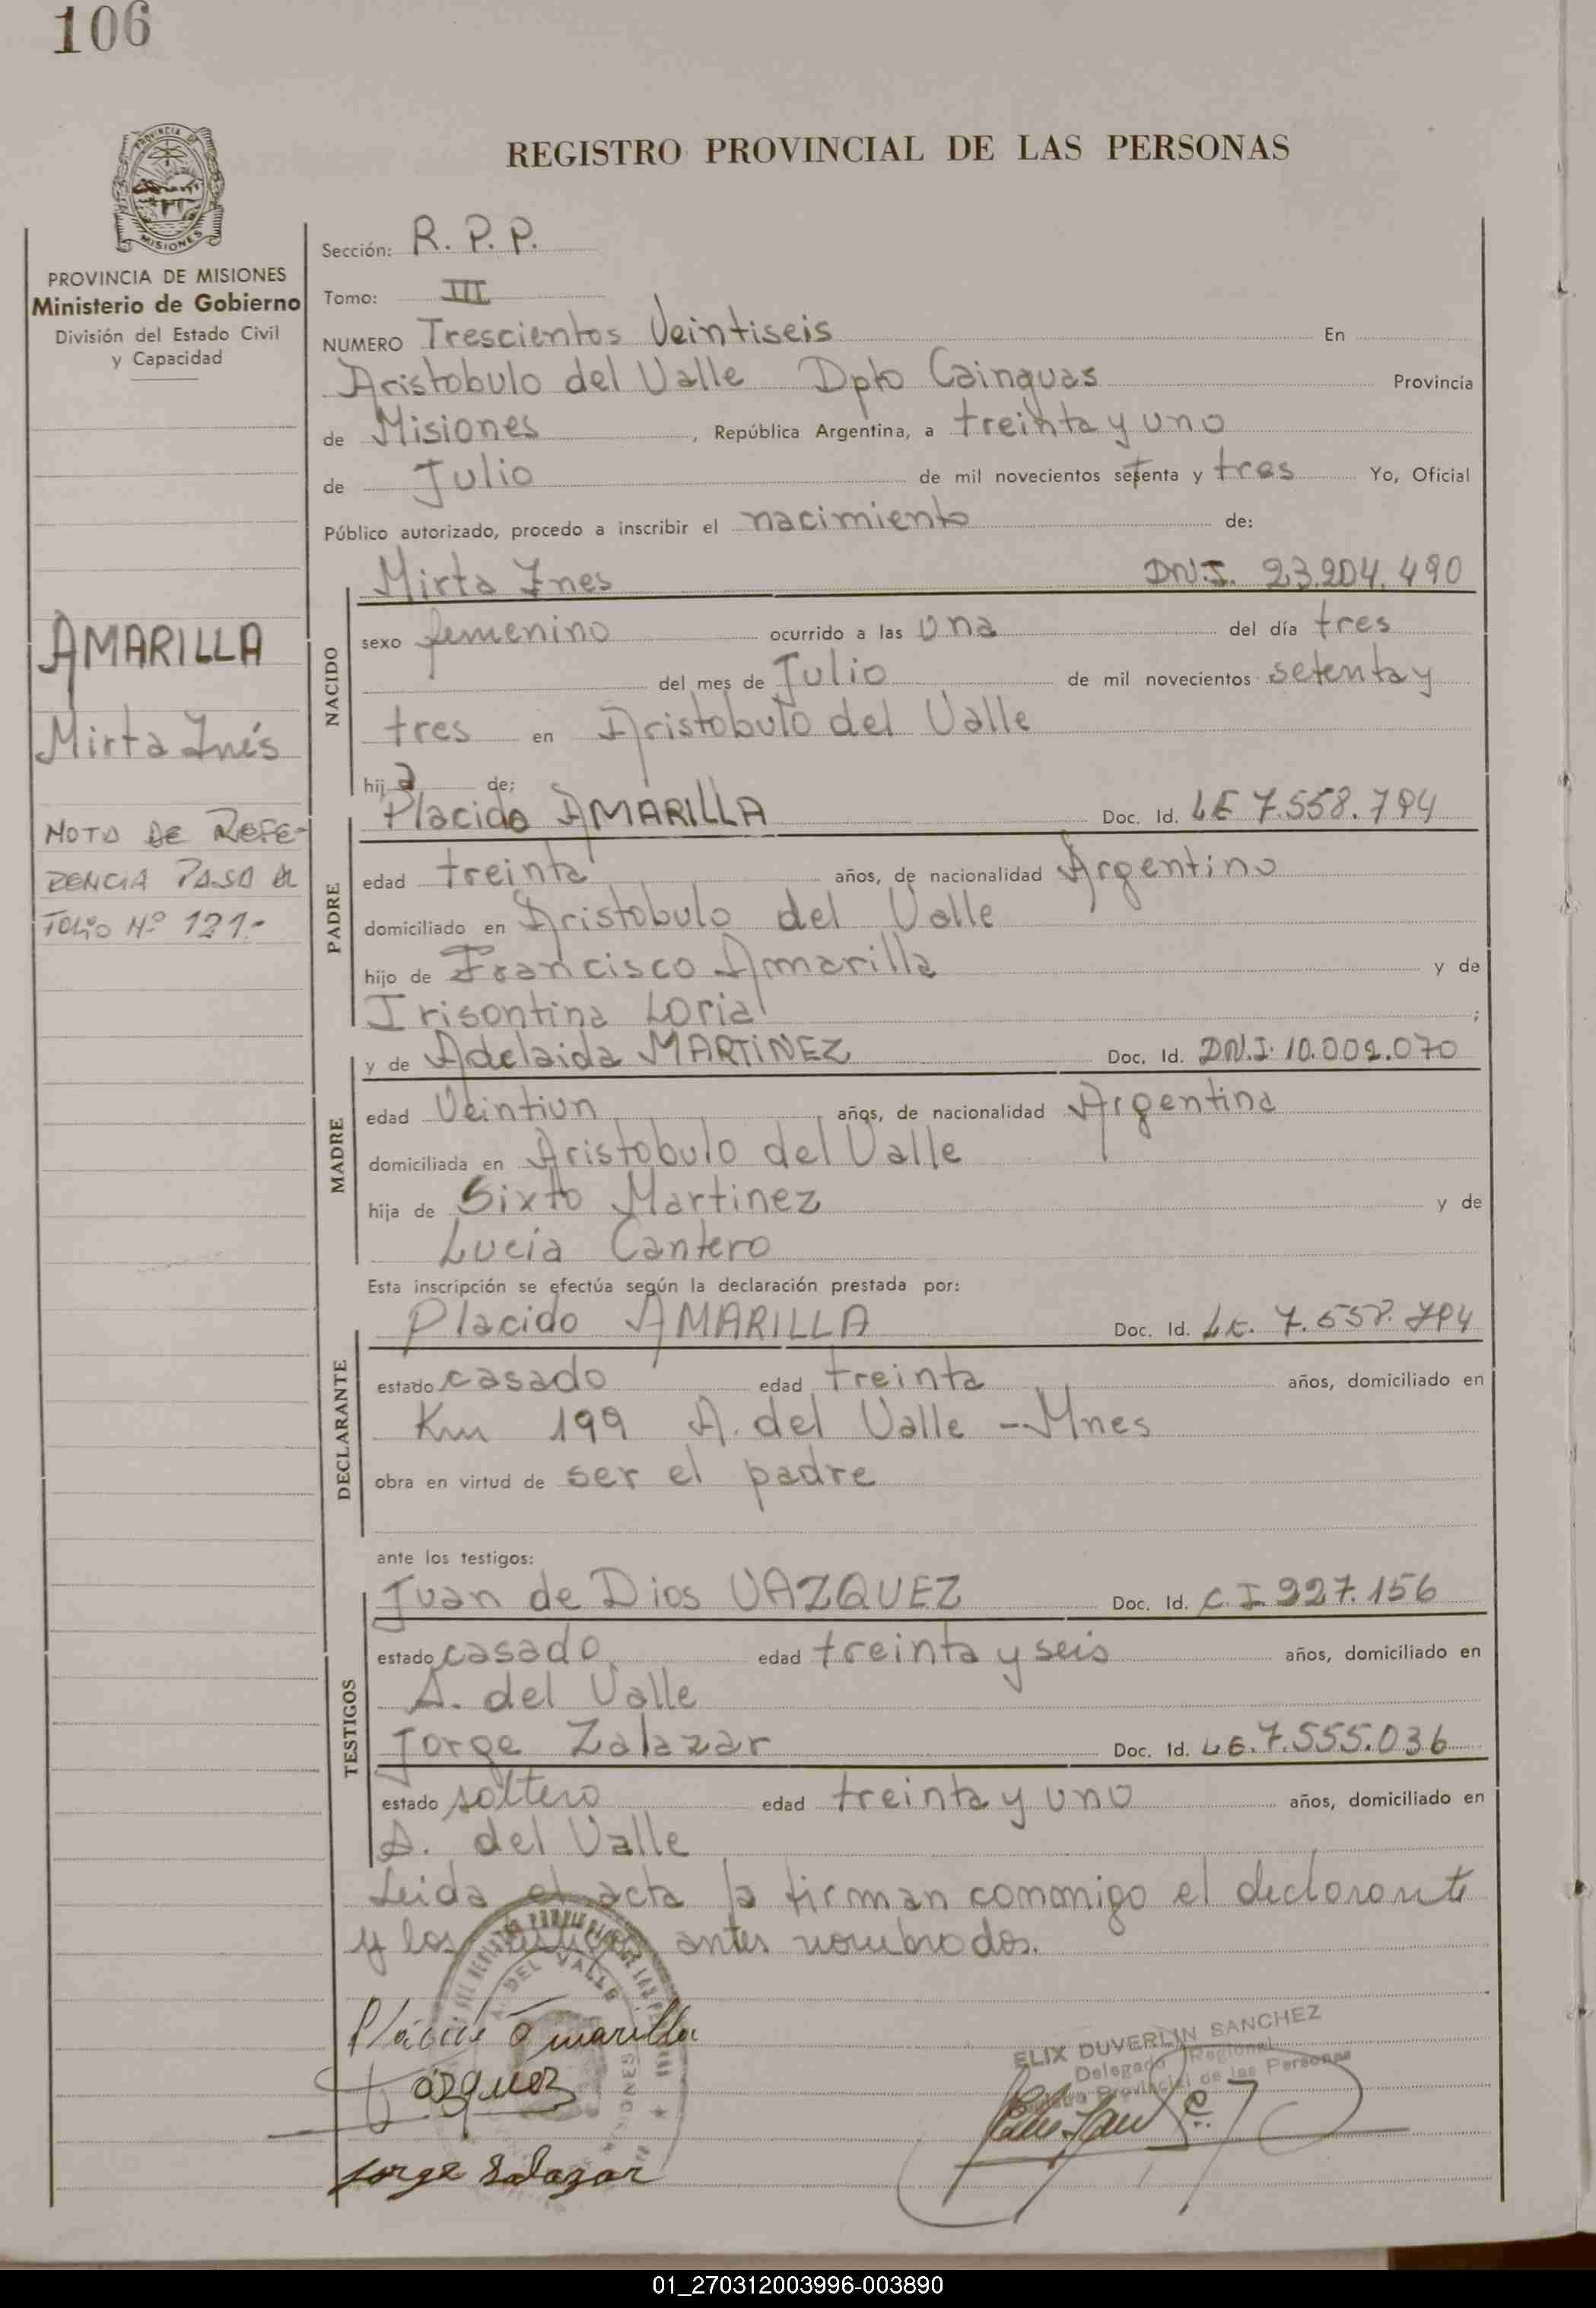 106
PROVINCIA DE MISIONES
Ministerio de Gobierno
División del Estado Civil
y Capacidad
REGISTRO PROVINCIAL DE LAS PERSONAS
Sección: R. P. P.
Tomo: III
NUMERO Trescientos Veintiseis En
Aristobulo del Valle Dpto Cainguas Provincia
de Misiones, República Argentina, a treinta y uno
de Julio de mil novecientos setenta y tres Yo, Oficial
Público autorizado, procedo a inscribir el nacimiento de:
AMARILLA
Mirta Inés
NOTA DE REFE-
RENCIA PASA AL
FOLIO Nº 121.-
NACIDO
Mirta Ines DN.I. 23.204.490
sexo femenino ocurrido a las una del día tres
del mes de Julio de mil novecientos setenta y
tres en Aristobulo del Valle
hija de:
PADRE
Placido AMARILLA Doc. Id. LE 7.558.794
edad treinta años, de nacionalidad Argentino
domiciliado en Aristobulo del Valle
hijo de Francisco Amarilla y de
Irisontina Loria ;
MADRE
y de Adelaida MARTINEZ Doc. Id. DN.I. 10.002.070
edad Veintiun años, de nacionalidad Argentina
domiciliada en Aristobulo del Valle
hija de Sixto Martinez y de
Lucia Cantero
Esta inscripción se efectúa según la declaración prestada por:
DECLARANTE
Placido AMARILLA Doc. Id. LE. 7.558.794
estado casado edad treinta años, domiciliado en
Km 199 A. del Valle - Mnes
obra en virtud de ser el padre
ante los testigos:
TESTIGOS
Juan de Dios VAZQUEZ Doc. Id. C.I 927.156
estado casado edad treinta y seis años, domiciliado en
A. del Valle
Jorge Zalazar Doc. Id. LE. 7.555.036
estado soltero edad treinta y uno años, domiciliado en
A. del Valle
Leida el acta la firman conmigo el declarante
y los testigos antes nombrados.
Plácido Amarilla
Vázquez
Jorge Salazar
ELIX DUVERLIN SANCHEZ
Delegado Regional
Provincial de las Personas
01_270312003996-003890